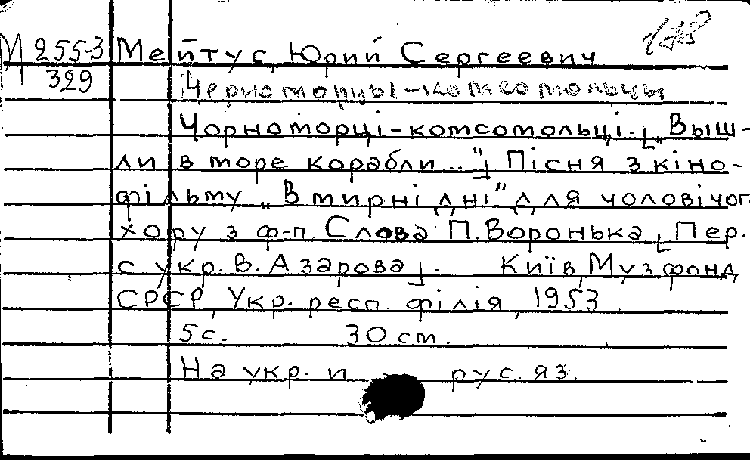 М 255-3 Мейтус, Юрий Сергеевич
329
Черноморцы-комсомольцы
Чорноморці-комсомольці. [„Выш-
ли в море корабли..."] Пісня з кіно-
фільму „В мирні дні" для чоловічог
хору з ф-п. Слова П. Воронька [Пер.
с укр. В. Азарова]. Київ, Музфонд
СРСР, Укр. респ. філія, 1953.
5 с. 30 см.
На укр. и рус. яз.